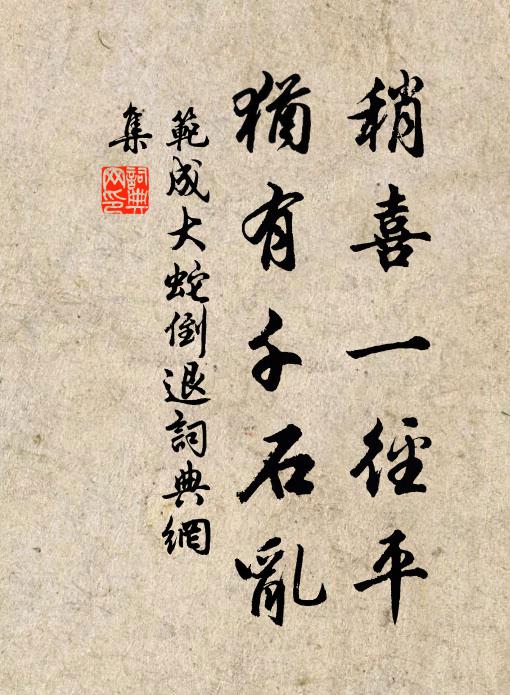 稍喜一徑平
猶有千石亂
範成大蛇倒退詞典網
集
詞典
网印